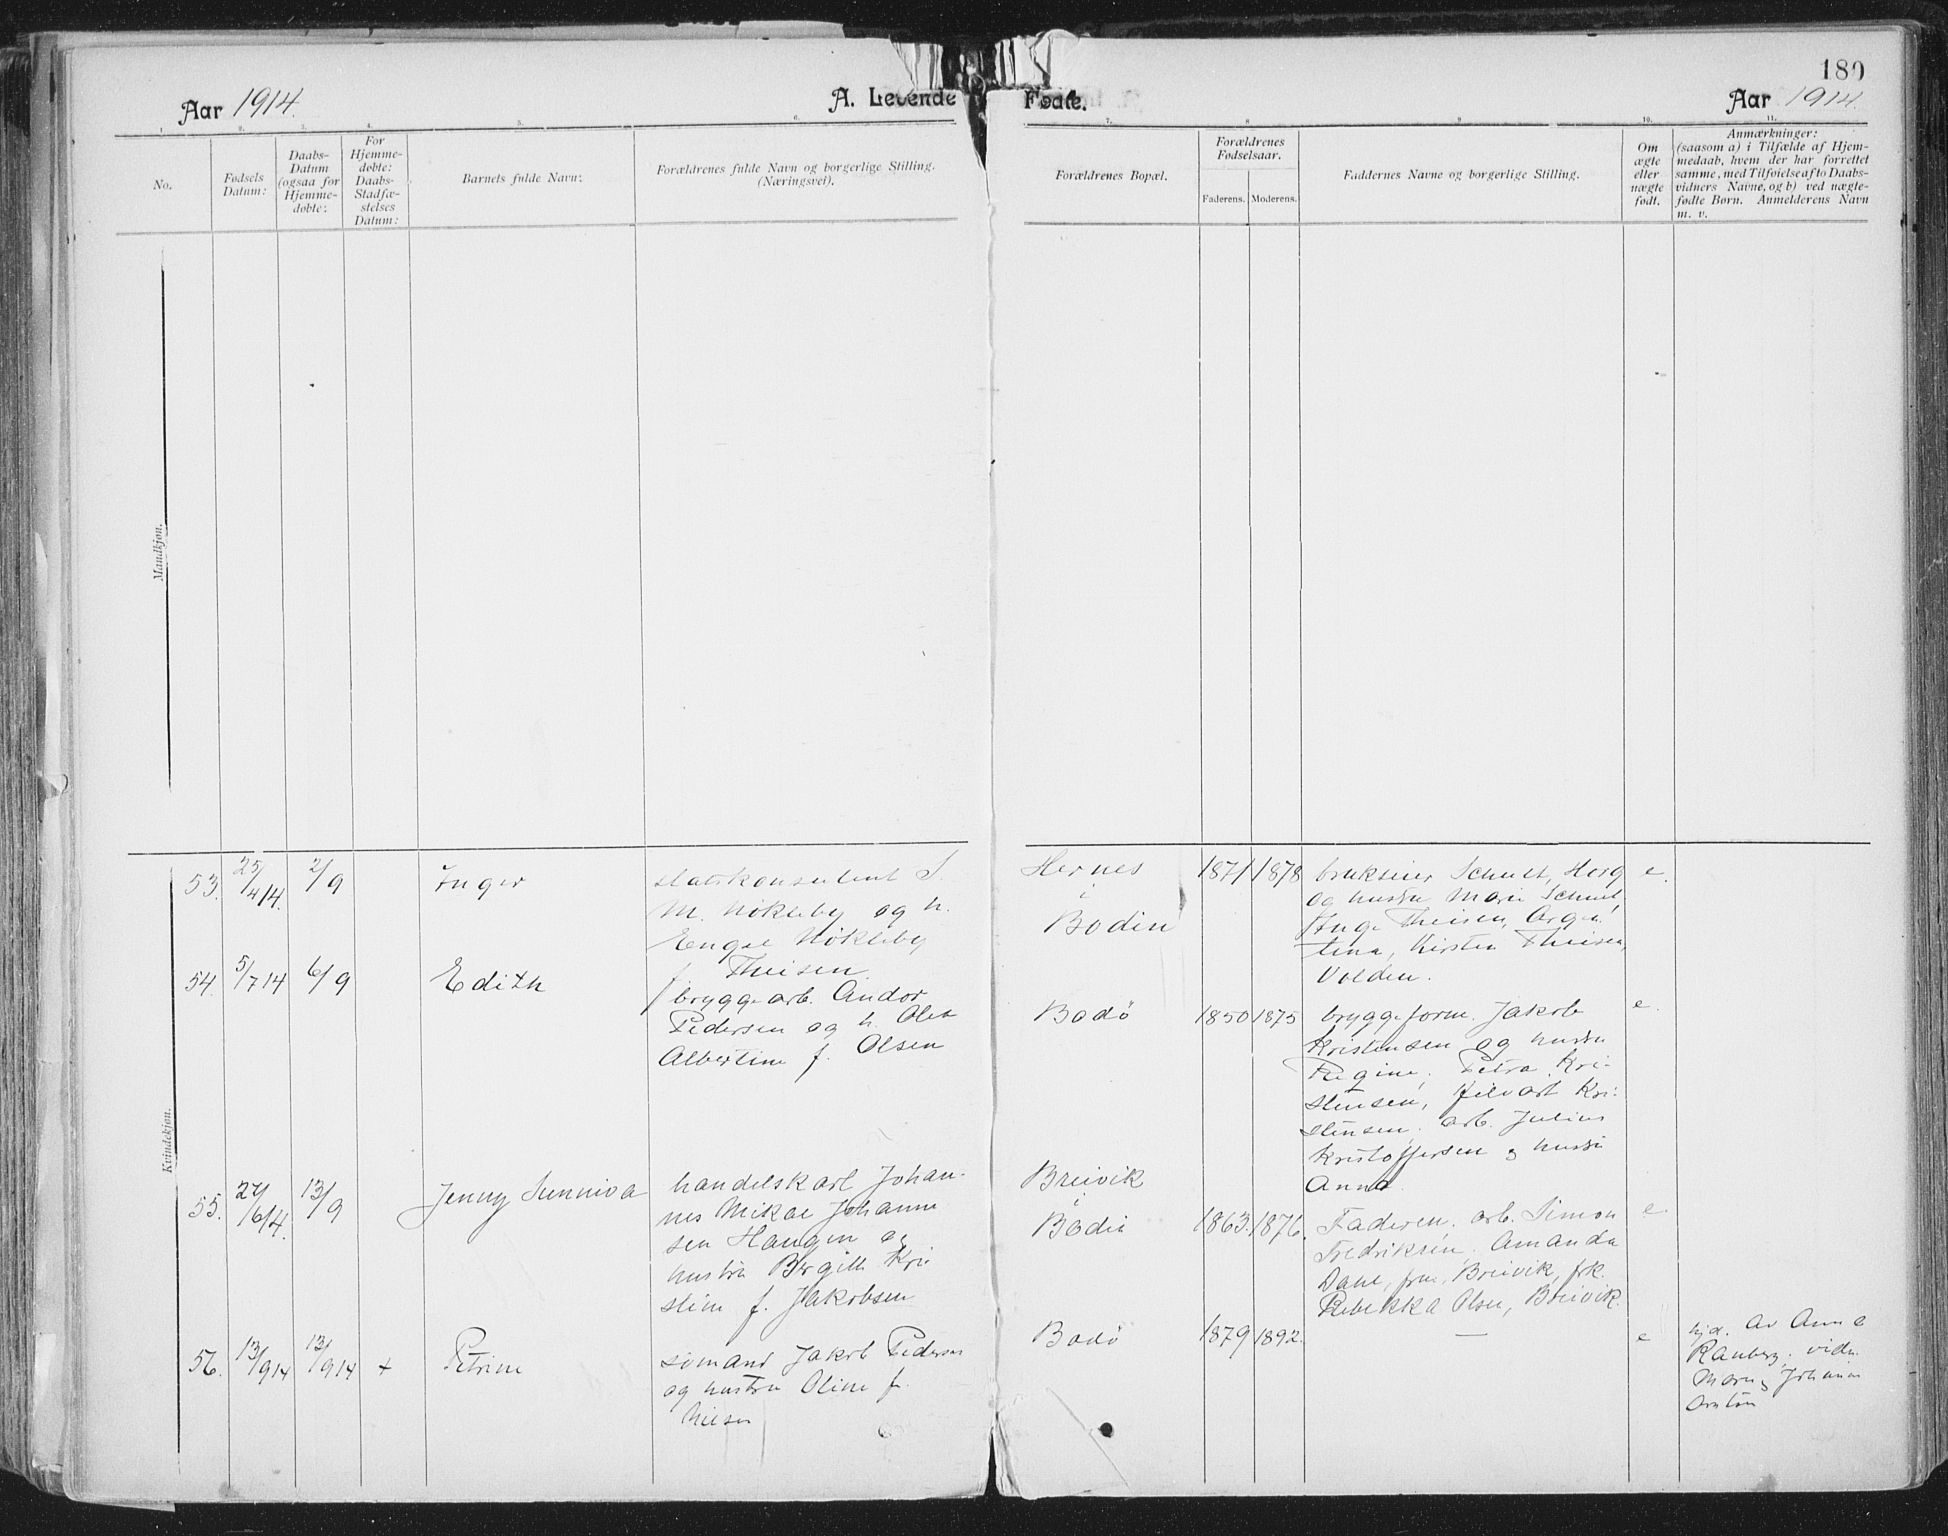 180
Aar 1914.
A. Levende
Fødte.
Aar 1914.
1.
2.
3.
4.
5.
6.
7.
8
9
10.
11.
No.
Fødsels
Datum:
Daabs-
Datum
(ogsaa for
Hjemme-
døbte:
For
Hjemme-
døbte:
Daabs-
Stadfæ-
stelses
Datum:
Barnets fulde Navn:
Forældrenes fulde Navn og borgerlige Stilling.
(Næringsvei).
Forældrenes Bopæl.
Forældrenes
Fødselsaar.
Faderens.
Moderens.
Faddernes Navne og borgerlige Stilling.
Om
ægte
eller
uægte
født.
Anmærkninger:
(saasom a) i Tilfælde af Hjem-
medaab, hvem der har forrettet
samme, med Tilføielse af to Daabs-
vidners Navne, og b) ved uægte-
fødte Børn. Anmelderens Navn
m. v.
Mandkjøn.
Kvindekjøn.
53.
25/4 14.
2/9
Inger
statskonsulent S.
M. Nøkleby og h.
Nøkleby
f. Theisen
Hernes
i
Bodin
1871
1878
brukseier Schult,
og hustru Marie Schult
Inga Theisen, Argen
tina, Kirsten Theisen,
Volden.
e.
54.
5/7 14
6/9
Edith
bryggearb. Andor
Pedersen og h. Oleа
Albertine f. Olsen
Bodø
1850
1875
bryggeform. Jakob
Kristensen og hustru
Regine. Petra Kri-
stensen, Kri-
stensen. arb. Julius
Kristoffersen og hustru
Anna.
e.
55.
27/6 14.
13/9
Jenny Sunniva
handelskarl Johan-
nes Mikal Johanne
sen Haugen og
hustru Birgitte Kri
stine f. Jakobsen
Breivik
i
Bodin
1863.
1876.
Faderen. arb. Simon
Fredriksen. Amanda
Dane, frue, Breivik, frk.
Rebekka Olsen, Breivik.
e
56.
13/9 14
13/9 14
+
Petrine
sømand Jakob Pedersen
og hustru Oline f.
Nilsen
Bodø
1879
1892.
—
e
hjd. av Anne
Ranberg. vidn.
Johanna